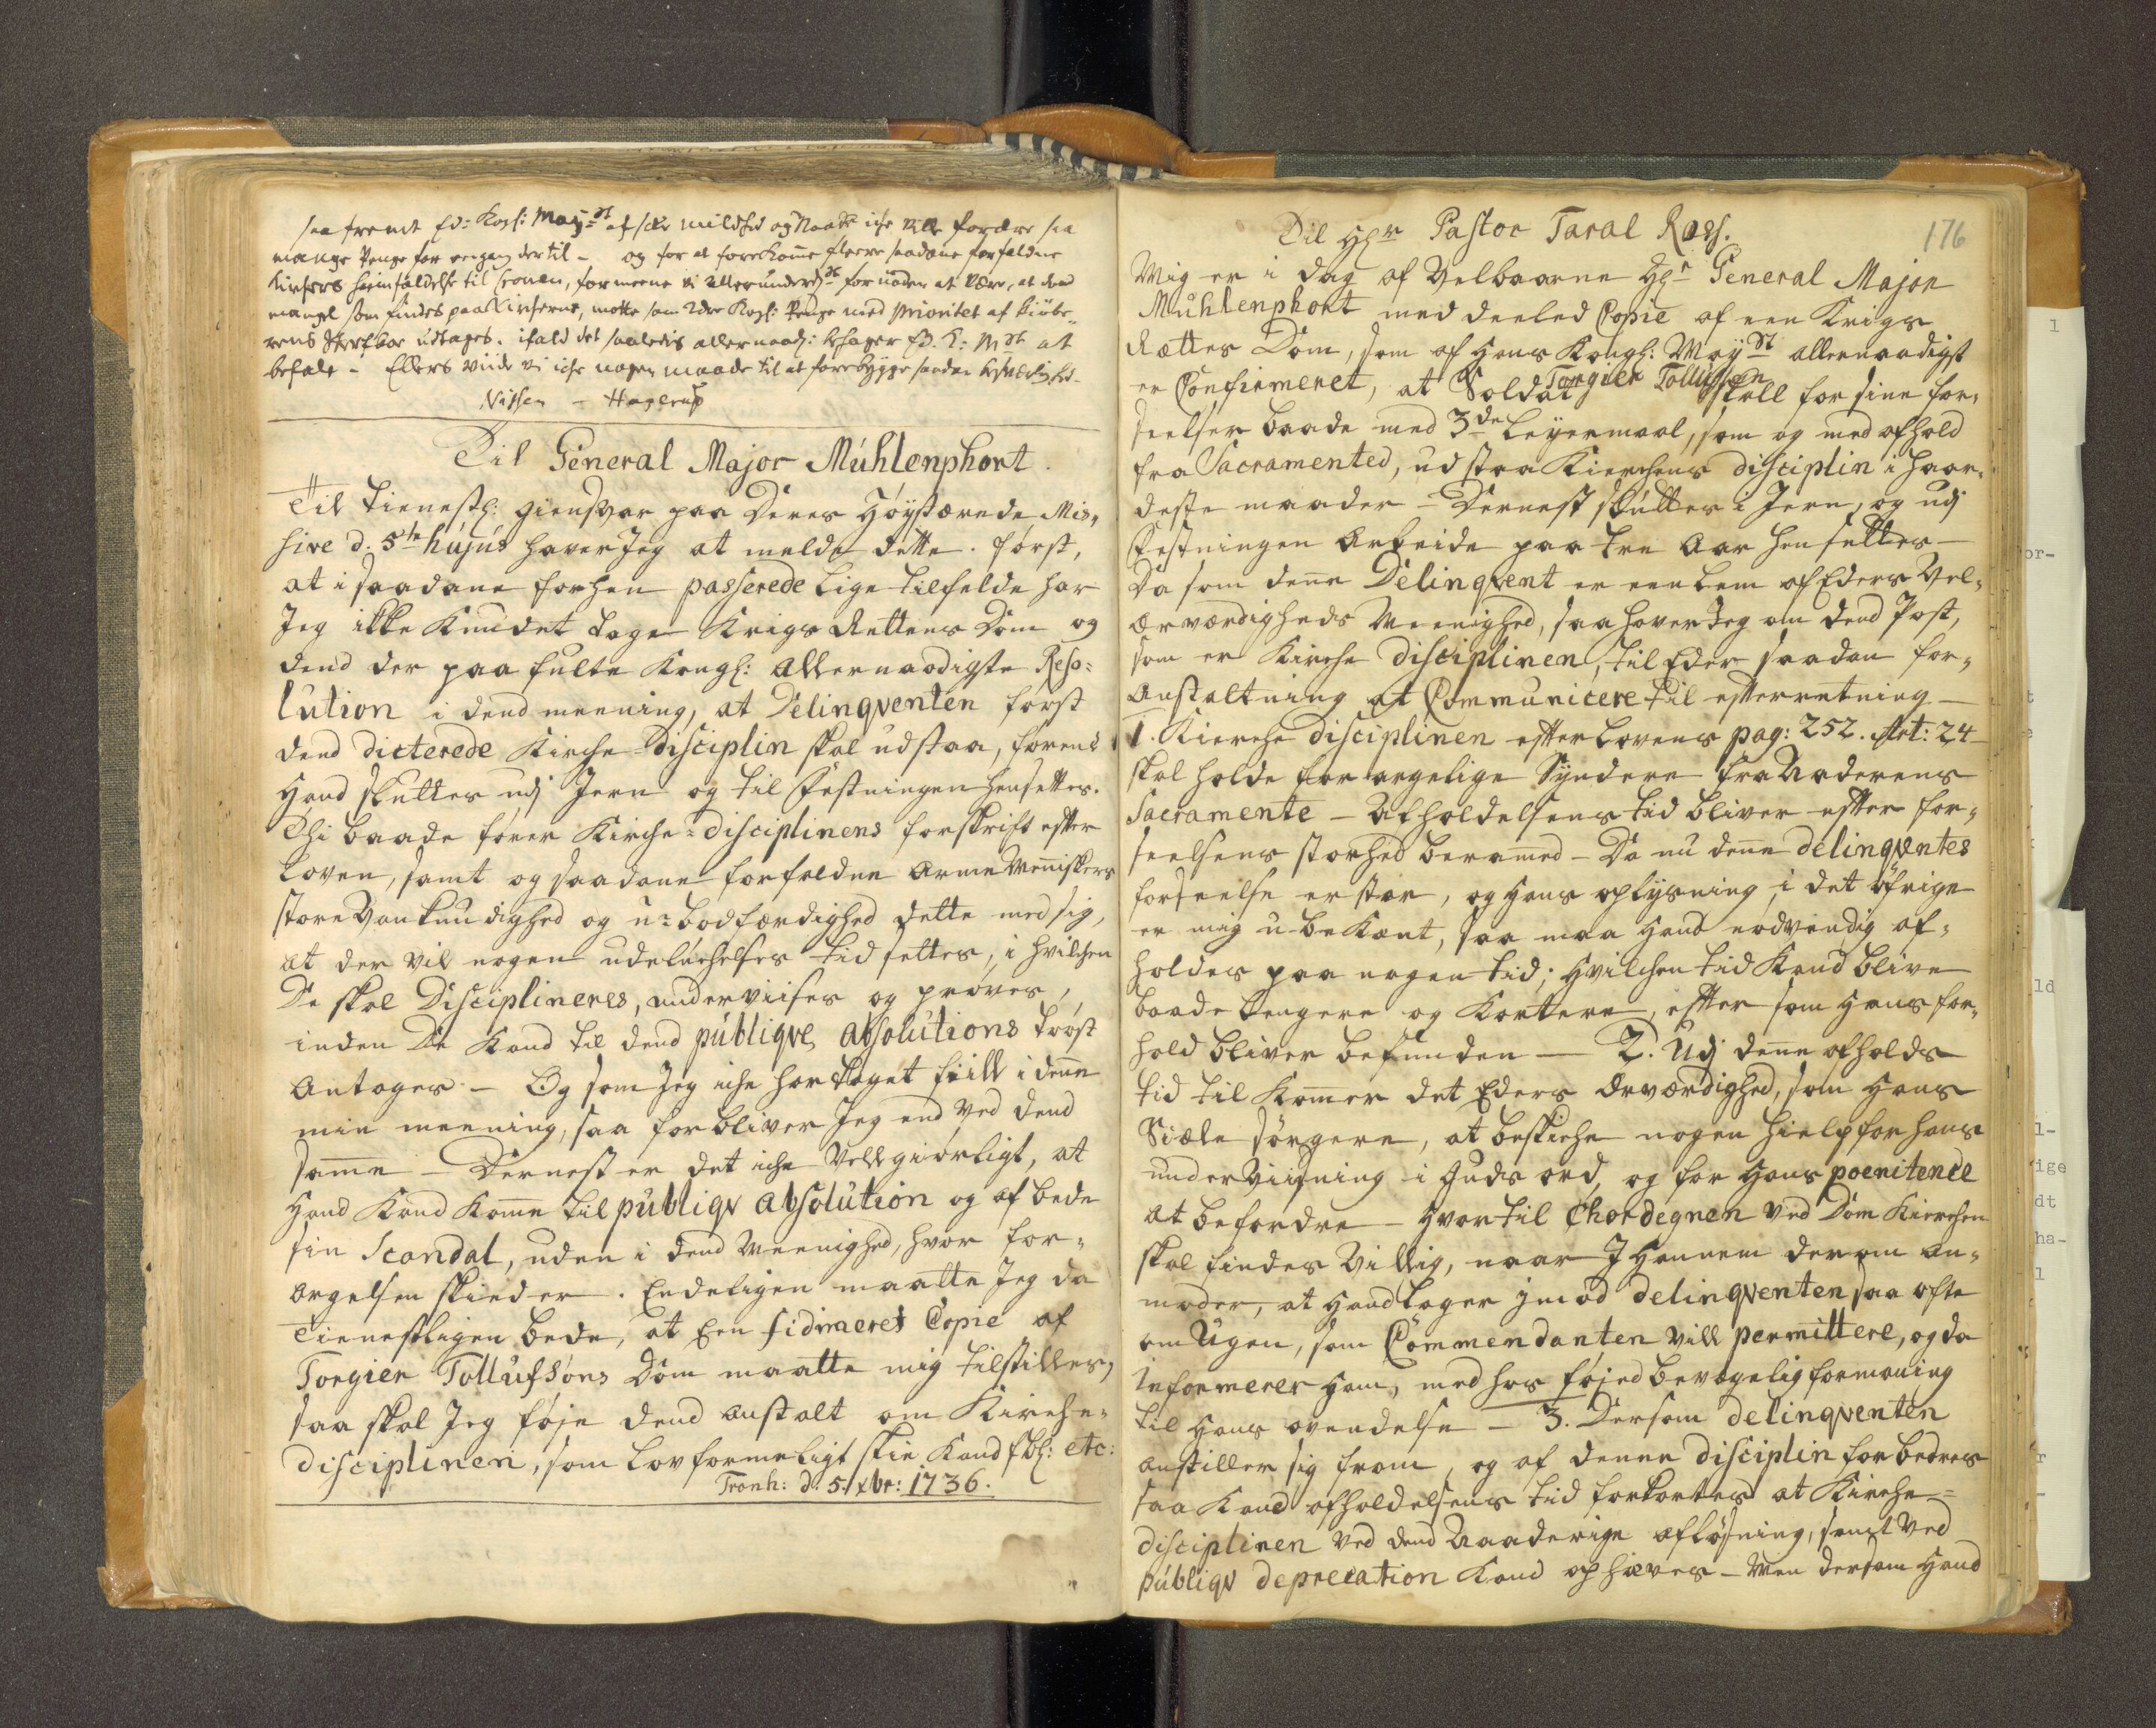 saa fremt Ed: Kogl: Mayst af sær mildhed og Naade iche ville fordre saa
mange Penge for eengang der til - og for at forekomme fleere saadane forfaldne
Kirchers heimfaldelse til Cronen, formeene vi allerunderdst fornøden at være, at dend
mangel som findes paa Kircherne, motte som Kogl: Penge med prioritet af kiøbe-
rens Sterfboe udtages. ifald det saaledis allernaad: behager Ed. K: Mst at
befale - Ellers viide vi iche nogen maade til at forebygge saadan
Nissen - Hagerup
Til General Major Mühlenphort.
Til tienestl: giensvar paa Deres Høystærede Mis-
sive d: 5te hujus haver Jeg at melde dette. først,
at i saadane forhen passerede lige tilfelde har
Jeg ikke Kundet tage Krigs Rettens Dom og
dend der paa fulte Kongl: Allernaadigste Reso-
lution i dend meening, at Delinqventen først
dend dicterede Kirche-disciplin skal udstaa, førend
Hand sluttes udj Jern og til Festningen hensettes.
Thi baade fører Kirche-disciplinens forskrift efter
Loven, samt og saadane forfaldne arme Menniskers
store Vankundighed og u-bodfærdighed dette med sig,
at der vil nogen udeluchelses tid settes, i hvilchen
De skal Disciplineres, underviises og prøves,
inden De Kand til dend publiqve absolutions trøst
Antages. - Og som Jeg iche har taget fejll i denne
min meening, saa forbliver Jeg end ved dend
samme - Dernest er det iche vell giørligt, at
Hand Kand Komme til publiqv absolution og afbede
sin Scandal, uden i dend Meenighed, hvor for-
argelsen skied er. Endeligen maatte Jeg da
tienestligen bede, at Een fidimeret Copie af
Torgier Tollufsøns Dom maatte mig tilstilles,
saa skal Jeg føje dend anstalt om Kirche-
disciplinen, som lovformeligt skie Kand etc:
Tronh: d: 5. xbr: 1736.
176
Til Hr Pastor Taral Roes.
Mig er i dag af Velbaarne Hr General Major
Mühlenphort meddeeled Copie af een Krigs
Rættes Dom, som af Hans Kongl: Mayst allernaadigst
er Confirmeret, at Soldat Torgier Tollufsøn skall for sine for-
seelser baade med 3de Leyermaal, som og med afhold
fra Sacramented, udstaa Kierchens disciplin i haar-
deste maader - Dernest sluttes i Jern, og udj
Festningen Arbeide paa tre Aar hensettes -
Da som denne Delinqvent er een Lem af Eders Vel-
ærværdigheds Meenighed, saa haver Jeg om dend Post,
som er Kirche disciplinen, til Eder saadan for-
anstaltning at Communicere til efterretning -
1. Kierche disciplinen efter Lovens pag: 252. Art: 24
skal holde forargelige Syndere fra Naadens
Sacramente - Afholdelsens tid bliver efter for-
seelsens storhed berammed - Da nu denne delinqventes
forseelse er stor, og Hans oplysning i det øfrige
er mig u-bekant, saa maa Hand nødvendig af-
holdes paa nogen tid; Hvilchen tid Kand blive
baade Lengere og Kortere, efter som Hans for-
hold bliver befunden - 2. Udj denne afholds
tid til Kommer det Eders Ærværdighed, som Hans
Siæle sørgere, at beskiche nogen hielp for Hans
underviisning i Guds ord, og for Hans poenitence
at befordre - Hvortil Chordegnen ved Dom Kierchen
skal findes Villig, naar I Hannem derom an-
moder, at Hand tager jmod delinqventen saa ofte
om Ugen, som Commendanten vill permittere, og da
informerer Ham, med hos føjed bevægelig formaning
til Hans omvendelse - 3. Dersom delinqventen
anstiller sig from, og af denne disciplin forbedres
saa Kand afholdelsens tid forkortes at Kirche-
disciplinen ved dend Naaderige afløsning, samt ved
publiqv deprecation Kand ophæves - Men dersom Hand